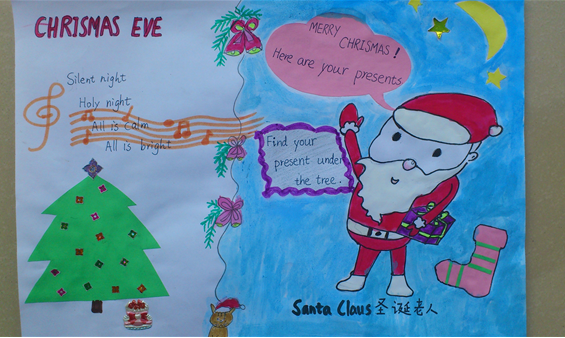 CHRISMAS EVE
Silent night
Holy night
All is calm
All is bright
MERRY
CHRISMAS!
Here are your presents
Find your
present under
the tree.
Santa Claus圣诞老人